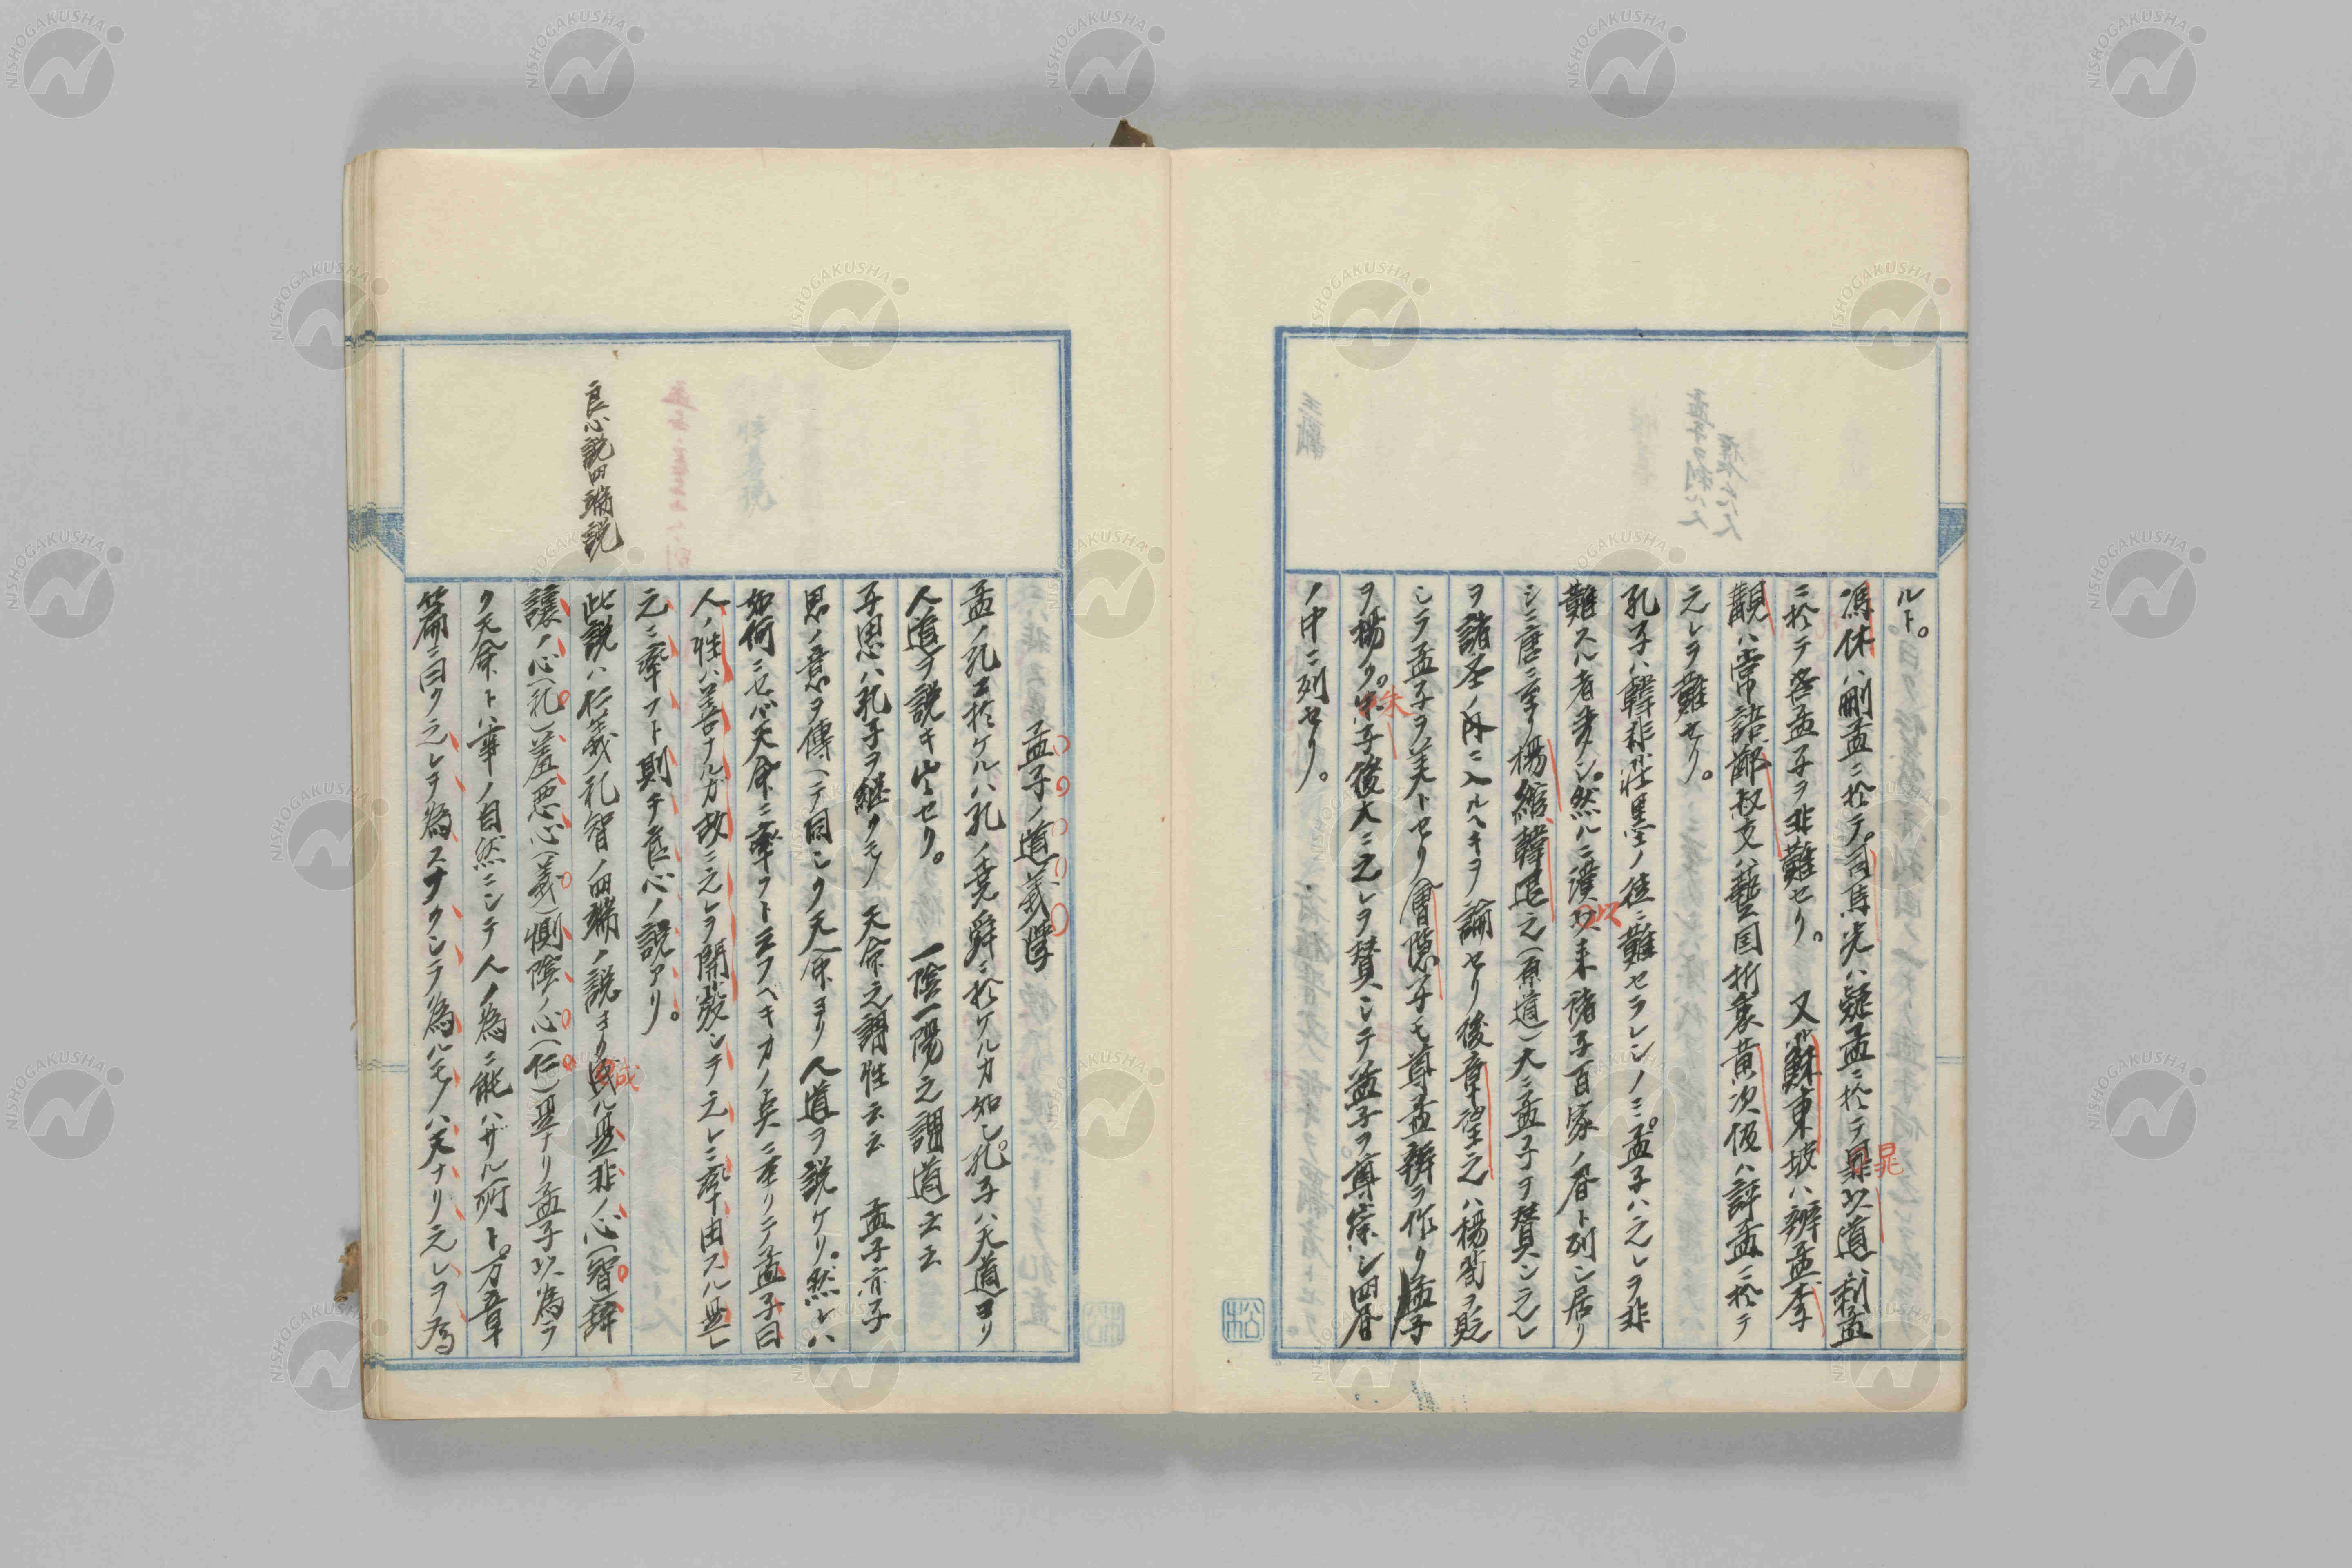 ルト。
馮休ハ刪孟ニ於テ。司馬光ハ疑孟ニ於テ晁以道ハ刺孟
ニ於テ各孟子ヲ非難セリ。又蘇東坡ハ辨孟李
覯ハ常語鄭叔文ハ藝国折衷黄次伋ハ評孟ニ於テ
之レヲ難セリ。
孔子ハ韓非荘墨ノ徒ニ難セラレシノミ。孟子ハ之レヲ非
難スル者多シ。然ルニ漢以来諸子百家ノ脊ト列シ居リ
シニ唐ニ至リ楊綰韓退之(原道)大ニ孟子ヲ賛シ之レ
ヲ諸圣ノ外ニ入ルヘキヲ論セリ後章望之ハ楊荀ヲ貶
シテ孟子ヲ美トセリ會隱子モ尊孟辨ヲ作リ孟子
ヲ揚ク。朱子後大ニ之レヲ賛シテ孟子ヲ尊崇シ四脊
ノ中ニ列セリ。
孟子ノ道義学
孟ノ孔ニ於ケルハ孔ノ堯舜ニ於ケルカ如シ。孔子ハ天道ヨリ
人道ヲ説キ出セリ。一陰一陽之謂道云云
子思ハ孔子ヲ継クモノ天命之謂性云云 孟子亦子
思ノ意ヲ傳ヘテ同シク天命ヨリ人道ヲ説ケリ。然レハ
如何ニセバ天命ニ率フト云フヘキカノ点ニ至リテ孟子曰
人ノ性ハ善ナルガ故ニ之レヲ開發シテ之レニ率由スル是レ
之ニ率フト則チ良心ノ説アリ。
良心説四端説
此説ハ仁義礼智ノ四端ノ説ヨリ成ル是非ノ心(智)辞
讓ノ心(礼)羞悪心(義)惻隐ノ心(仁)是ナリ孟子以為ラ
ク天命トハ事ノ自然ニシテ人ノ為ニ能ハザル所ト。万章
篇ニ曰ク之レヲ為スナクシテ為ルモノハ天ナリ之レヲ為
晁
以
朱
成
松